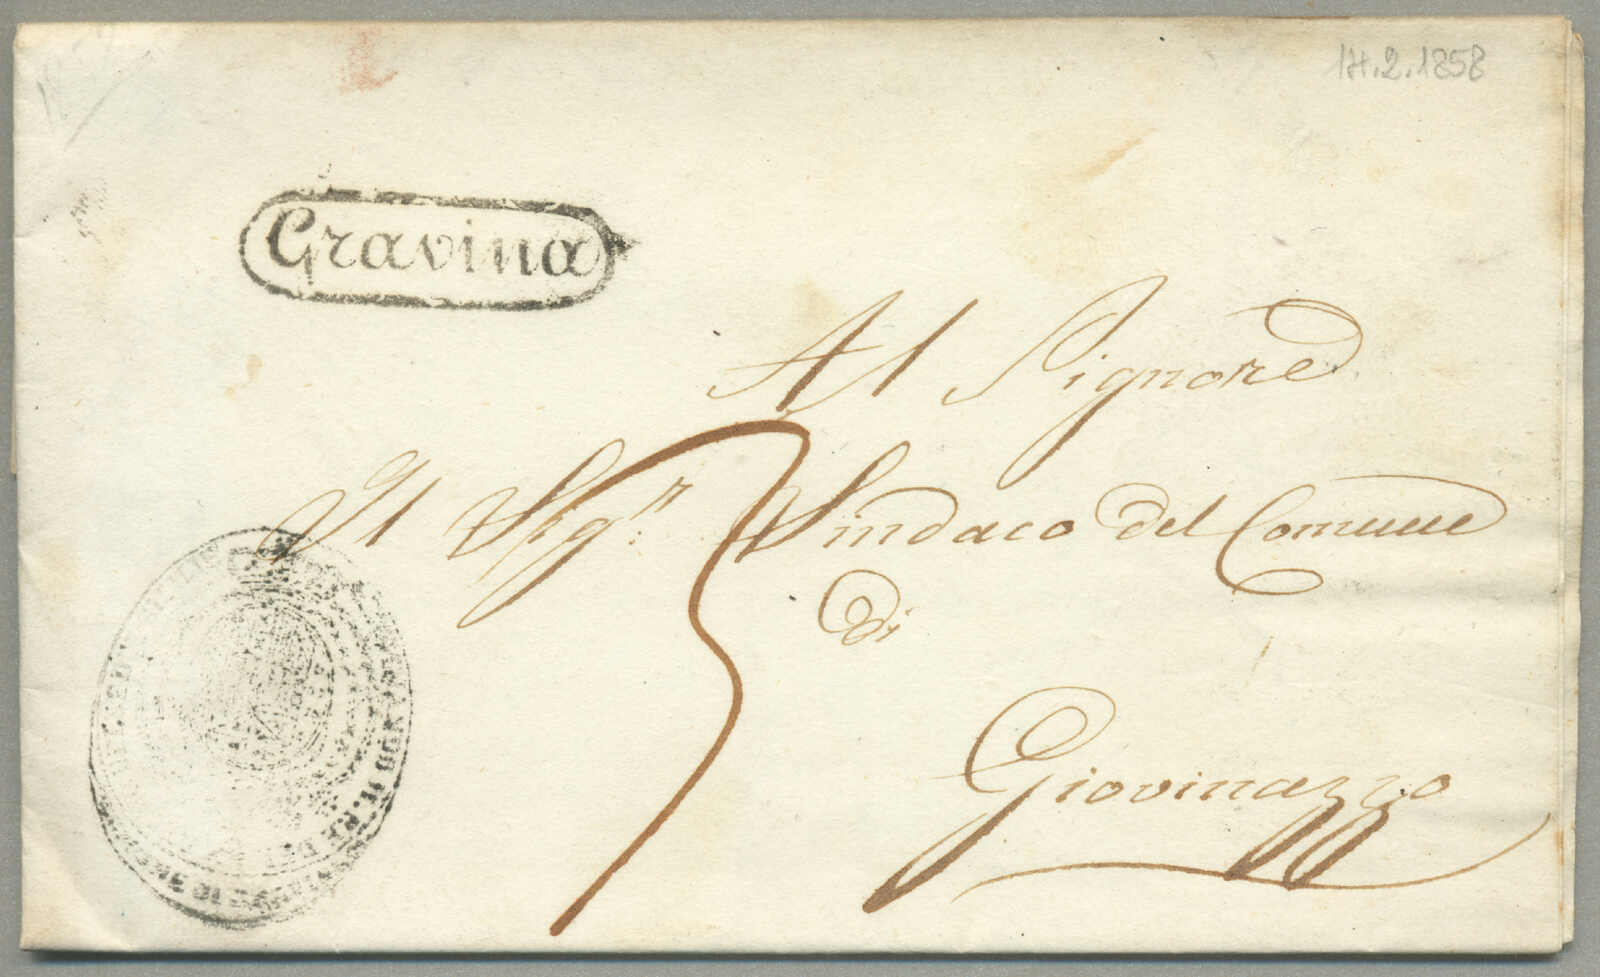 14.2.1858
Gravina
Al Signore
Il Sig.r Sindaco del Comune
di
Giovinazzo